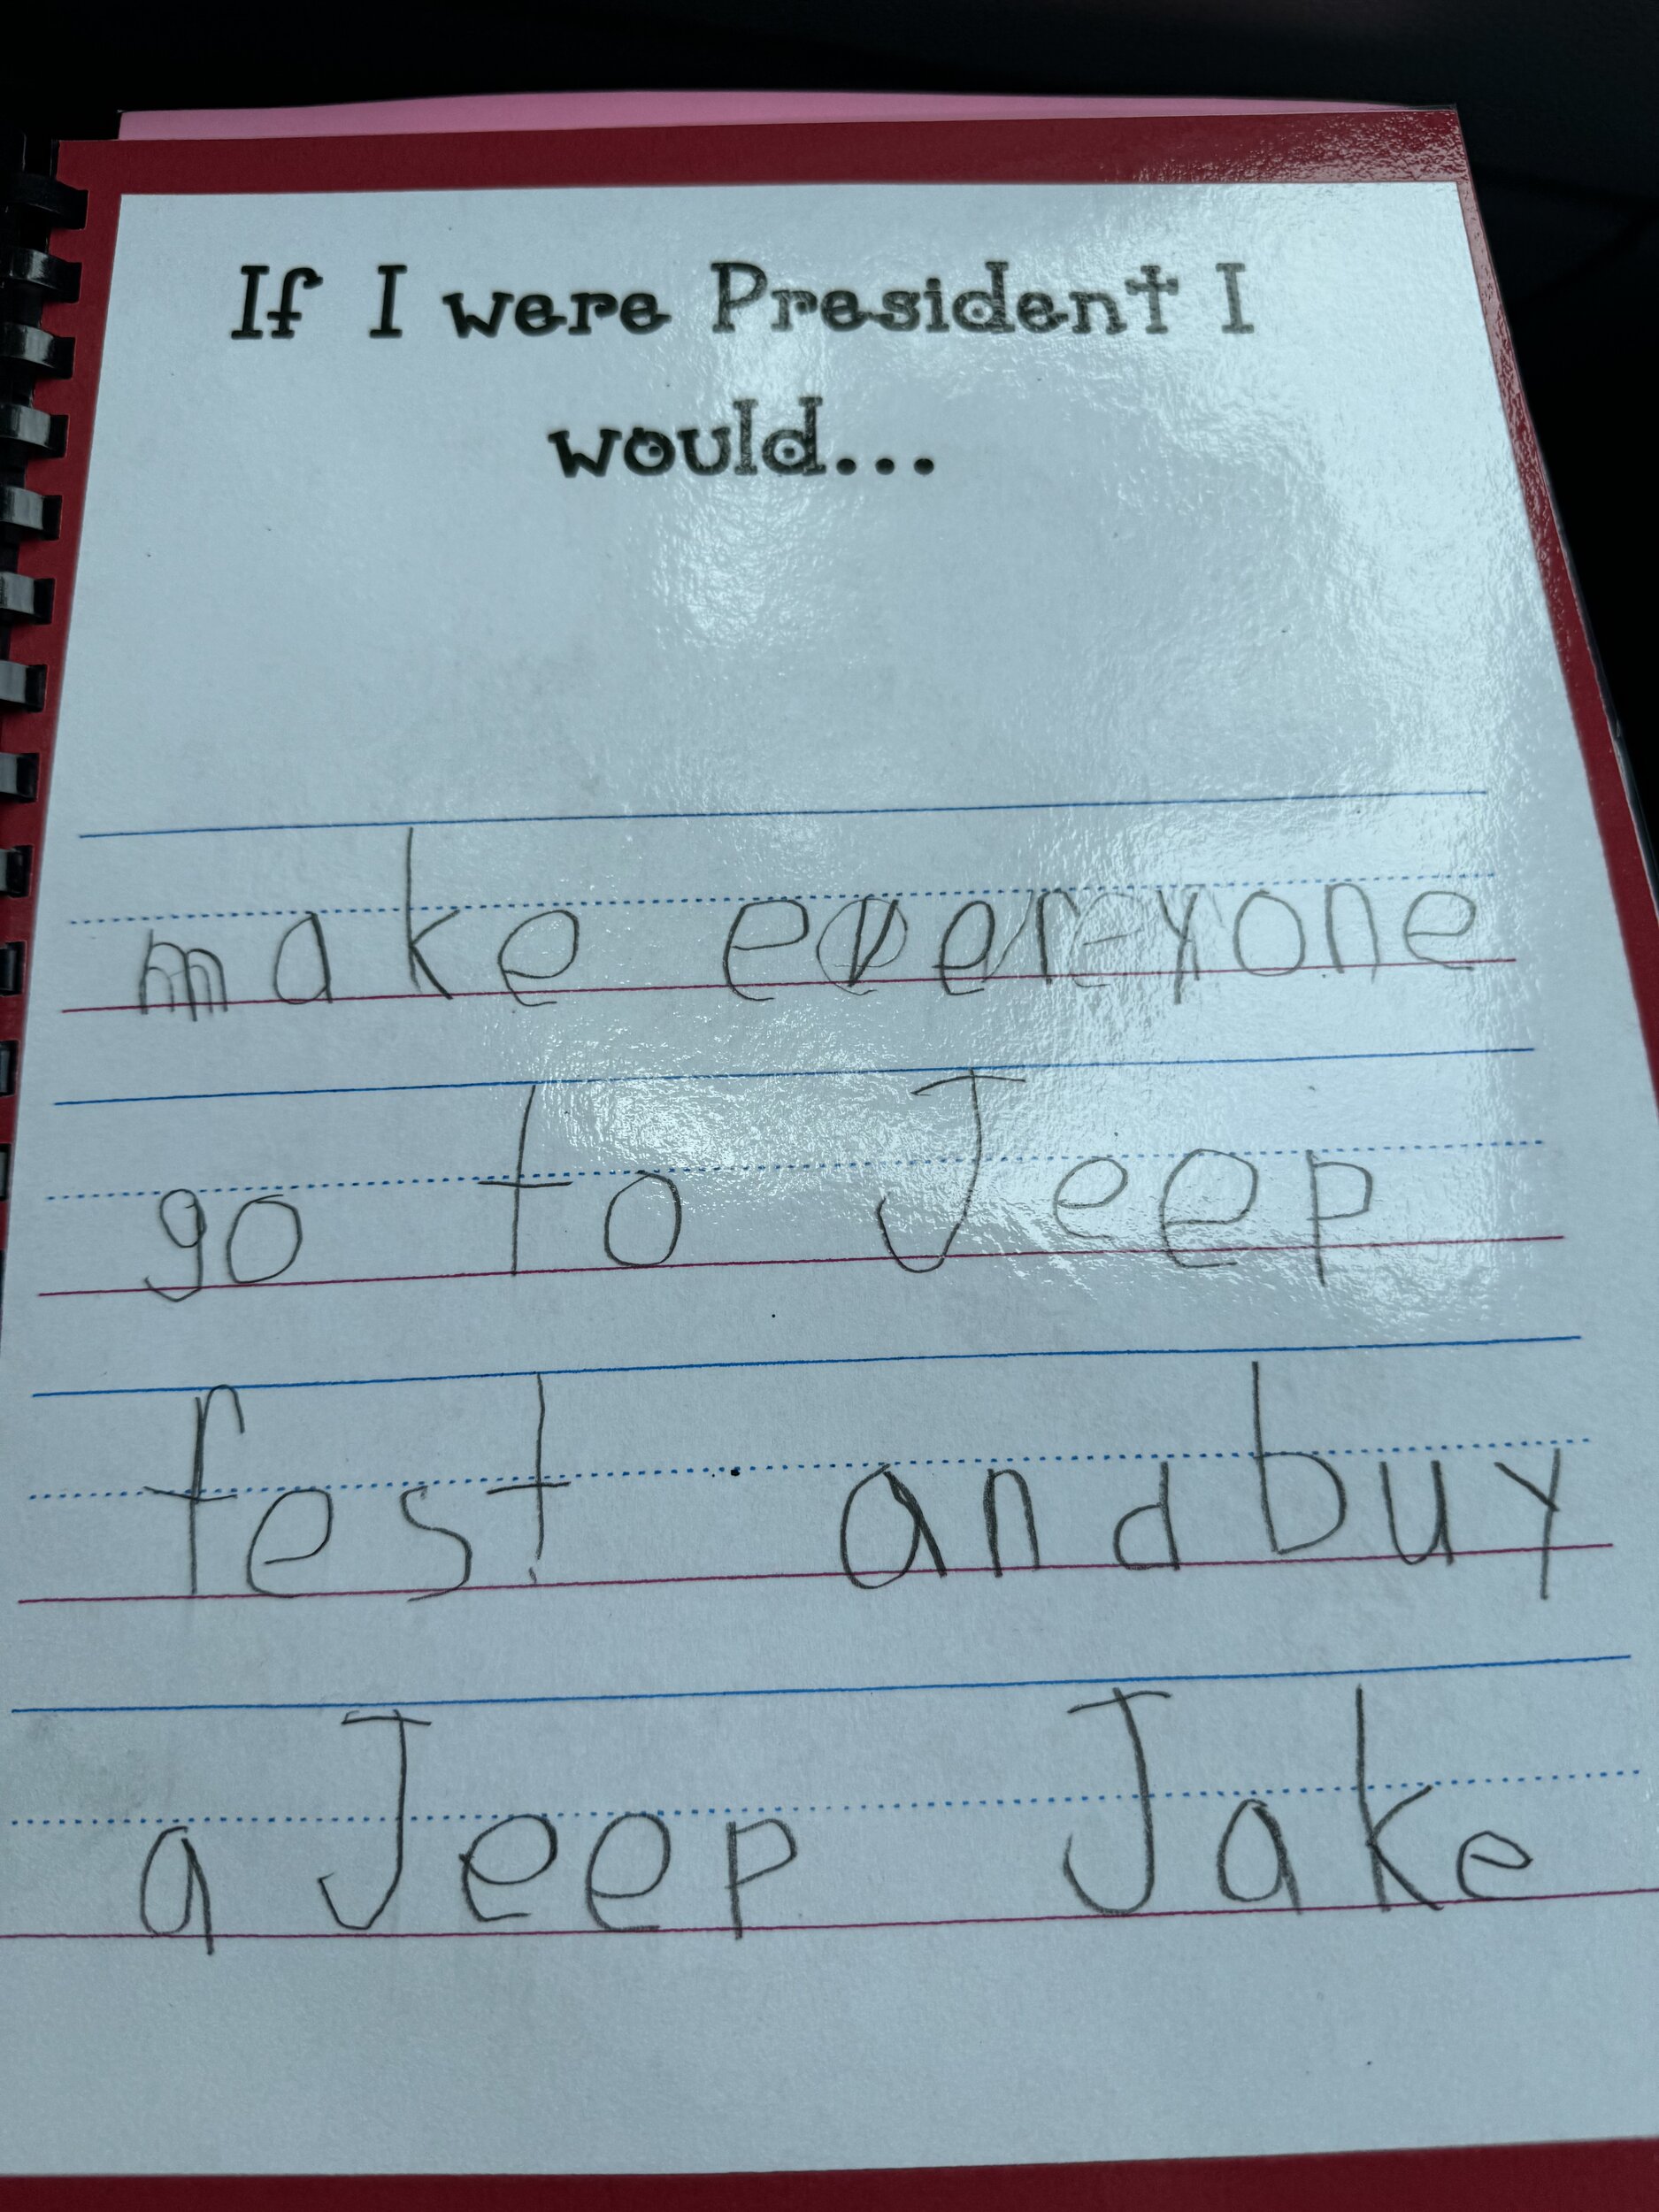 If I were President I
would...
make everyone
go to Jeep
fest and buy
a Jeep Jake